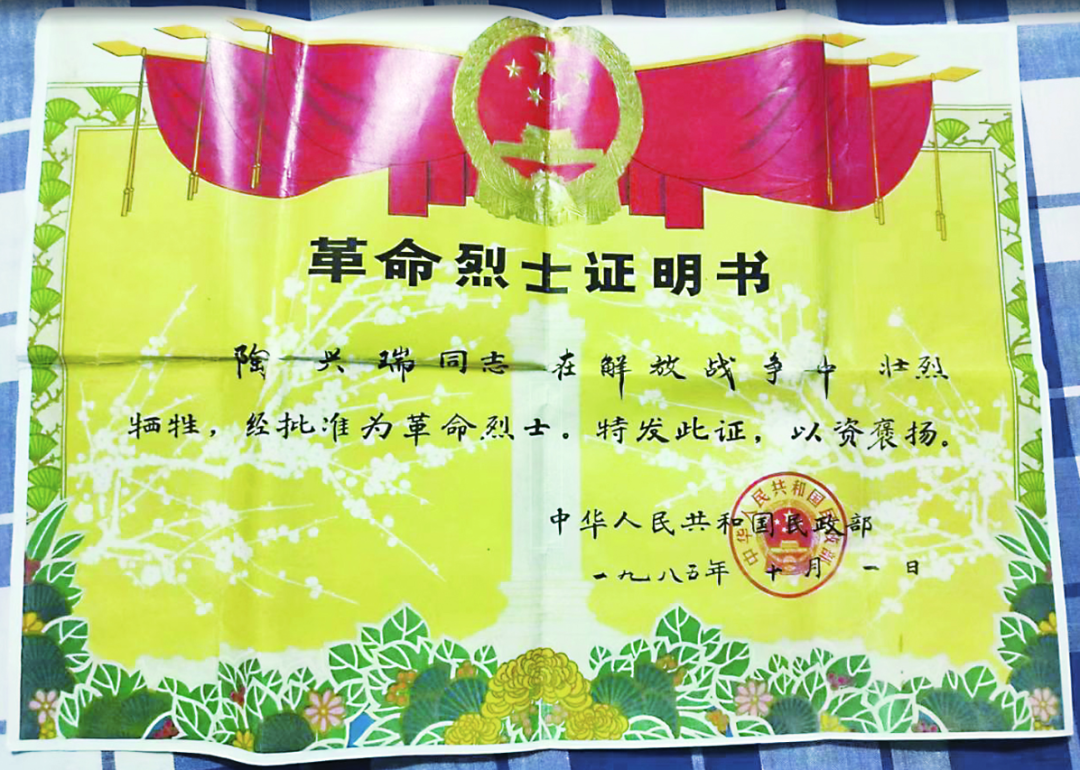 革命烈士证明书
陶兴瑞同志在解放战争中壮烈
牺牲，经批准为革命烈士。特发此证，以资褒扬。
中华人民共和国民政部
一九八五年十月一日
中华人民共和国民政部